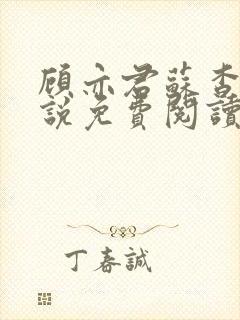 顾亦君蘇杳
說免費閱讀
丁春誠